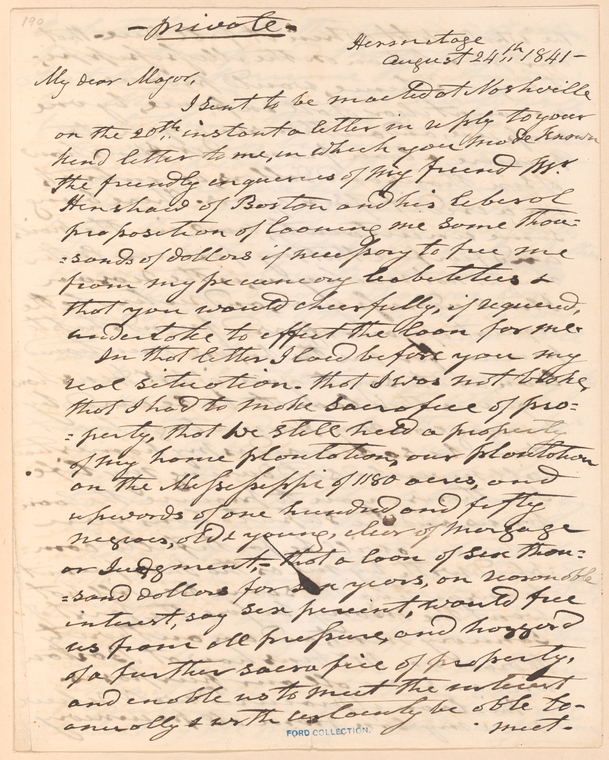 190
- Private -
Hermitage
August 24th, 1841 -
My dear Major,
I sent to be mailed at Nashville
on the 20th instant a letter in reply to your
kind letter to me, in which you made known
the friendly inqueries of my friend Mr.
Henshaw of Boston and his liberal
proposition of loaning me some thou=
=sands of dollars if necessary to free me
from my pecuniary liabilities &
that you would cheerfully, if required,
undertake to effect the loan for me.
In that letter I laid before you my
real situation. that I was not broke,
that I had to make sacrafice of pro=
=perty, that we still held a property
of my home plantation, our plantation
on the Mississippi of 1180 acres, and
upwards of one hundred and fifty
negroes, old & young, clear of morgage
or Judgment, - that a loan of six thou=
=sand dollars for six years, on reasonable
interest, say six pr cent, would free
us from all pressure, and hazzard
of a further sacrafice of property,
and enable us to meet the interest
anually & with certainty be able to
meet -
FORD COLLECTION.